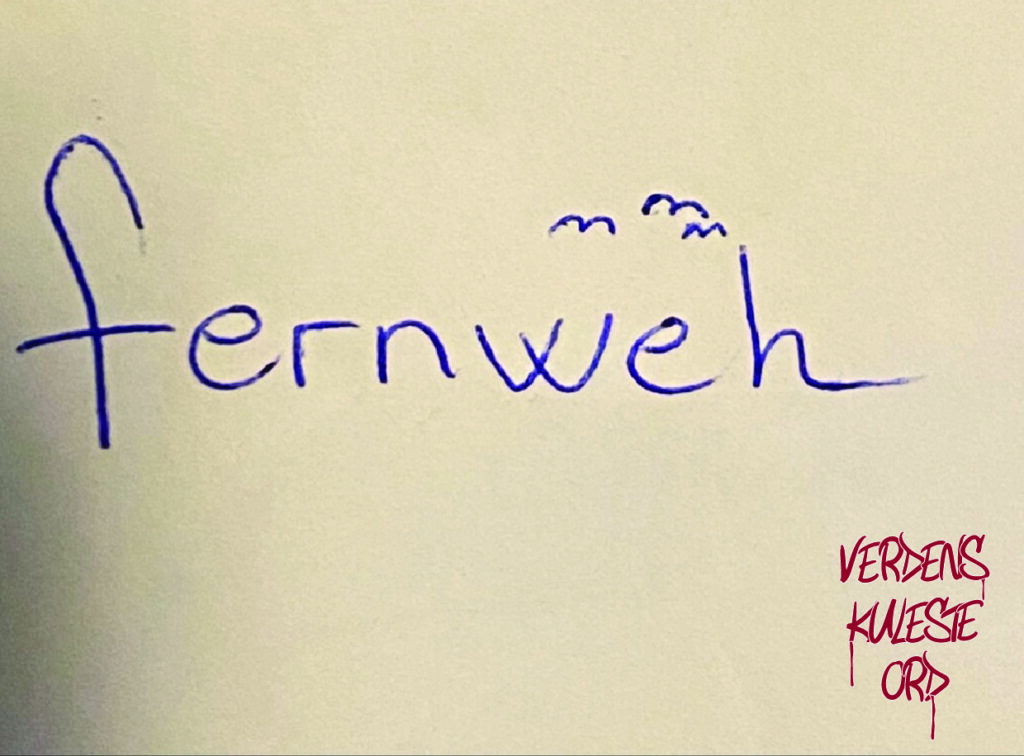 fernweh
VERDENS
KULESTE
ORD